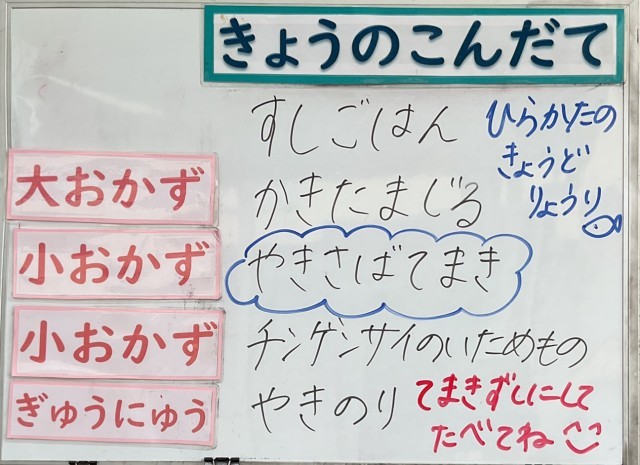 きょうのこんだて
すしごはん
ひらかたの
きょうど
りょうり
大おかず
かきたまじる
小おかず
やきさばてまき
小おかず
チンゲンサイのいためもの
ぎゅうにゅう
やきのり
てまきずしにして
たべてね